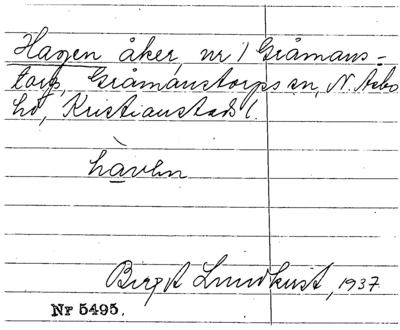 Hagen åker, nr 1 Gråmans-
torp, Gråmanstorps sn, N. Åsbo
hd, Kristianstads l.
hàvhn
Birgit Lundkvist, 1937
Nr 5495.